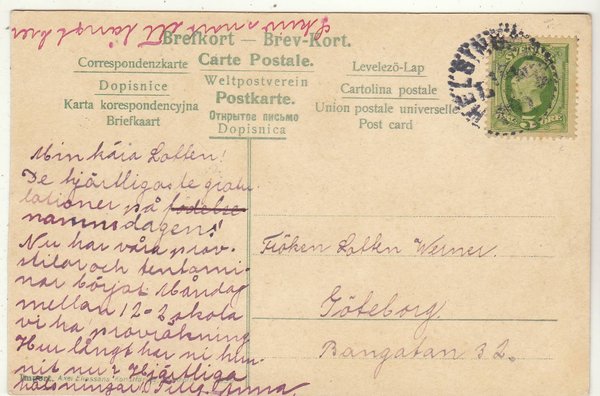 Skriv snart ett långt brev
Brefkort — Brev-Kort.
Correspondenzkarte
Carte Postale.
Levelező-Lap
Dopisnice
Weltpostverein
Cartolina postale
Karta korespondencyjna
Postkarte.
Union postale universelle
Briefkaart
Открытое письмо
Post card
Dopisnica
SVERIGE
5 ÖRE
Min kära Lotten!
De hjärtligaste gratu-
lationer på födelse
namnsdagen!
Nu har våra prov-
stilar och tentami-
nar börjat. Måndag
mellan 12-2 skola
vi ha provräkning
Hur långt har ni hun-
nit nu? Hjärtliga
hälsningar
Fröken Lotten Werner.
Göteborg.
Bangatan 32.
Import. Axel Eliassons Konstförlag